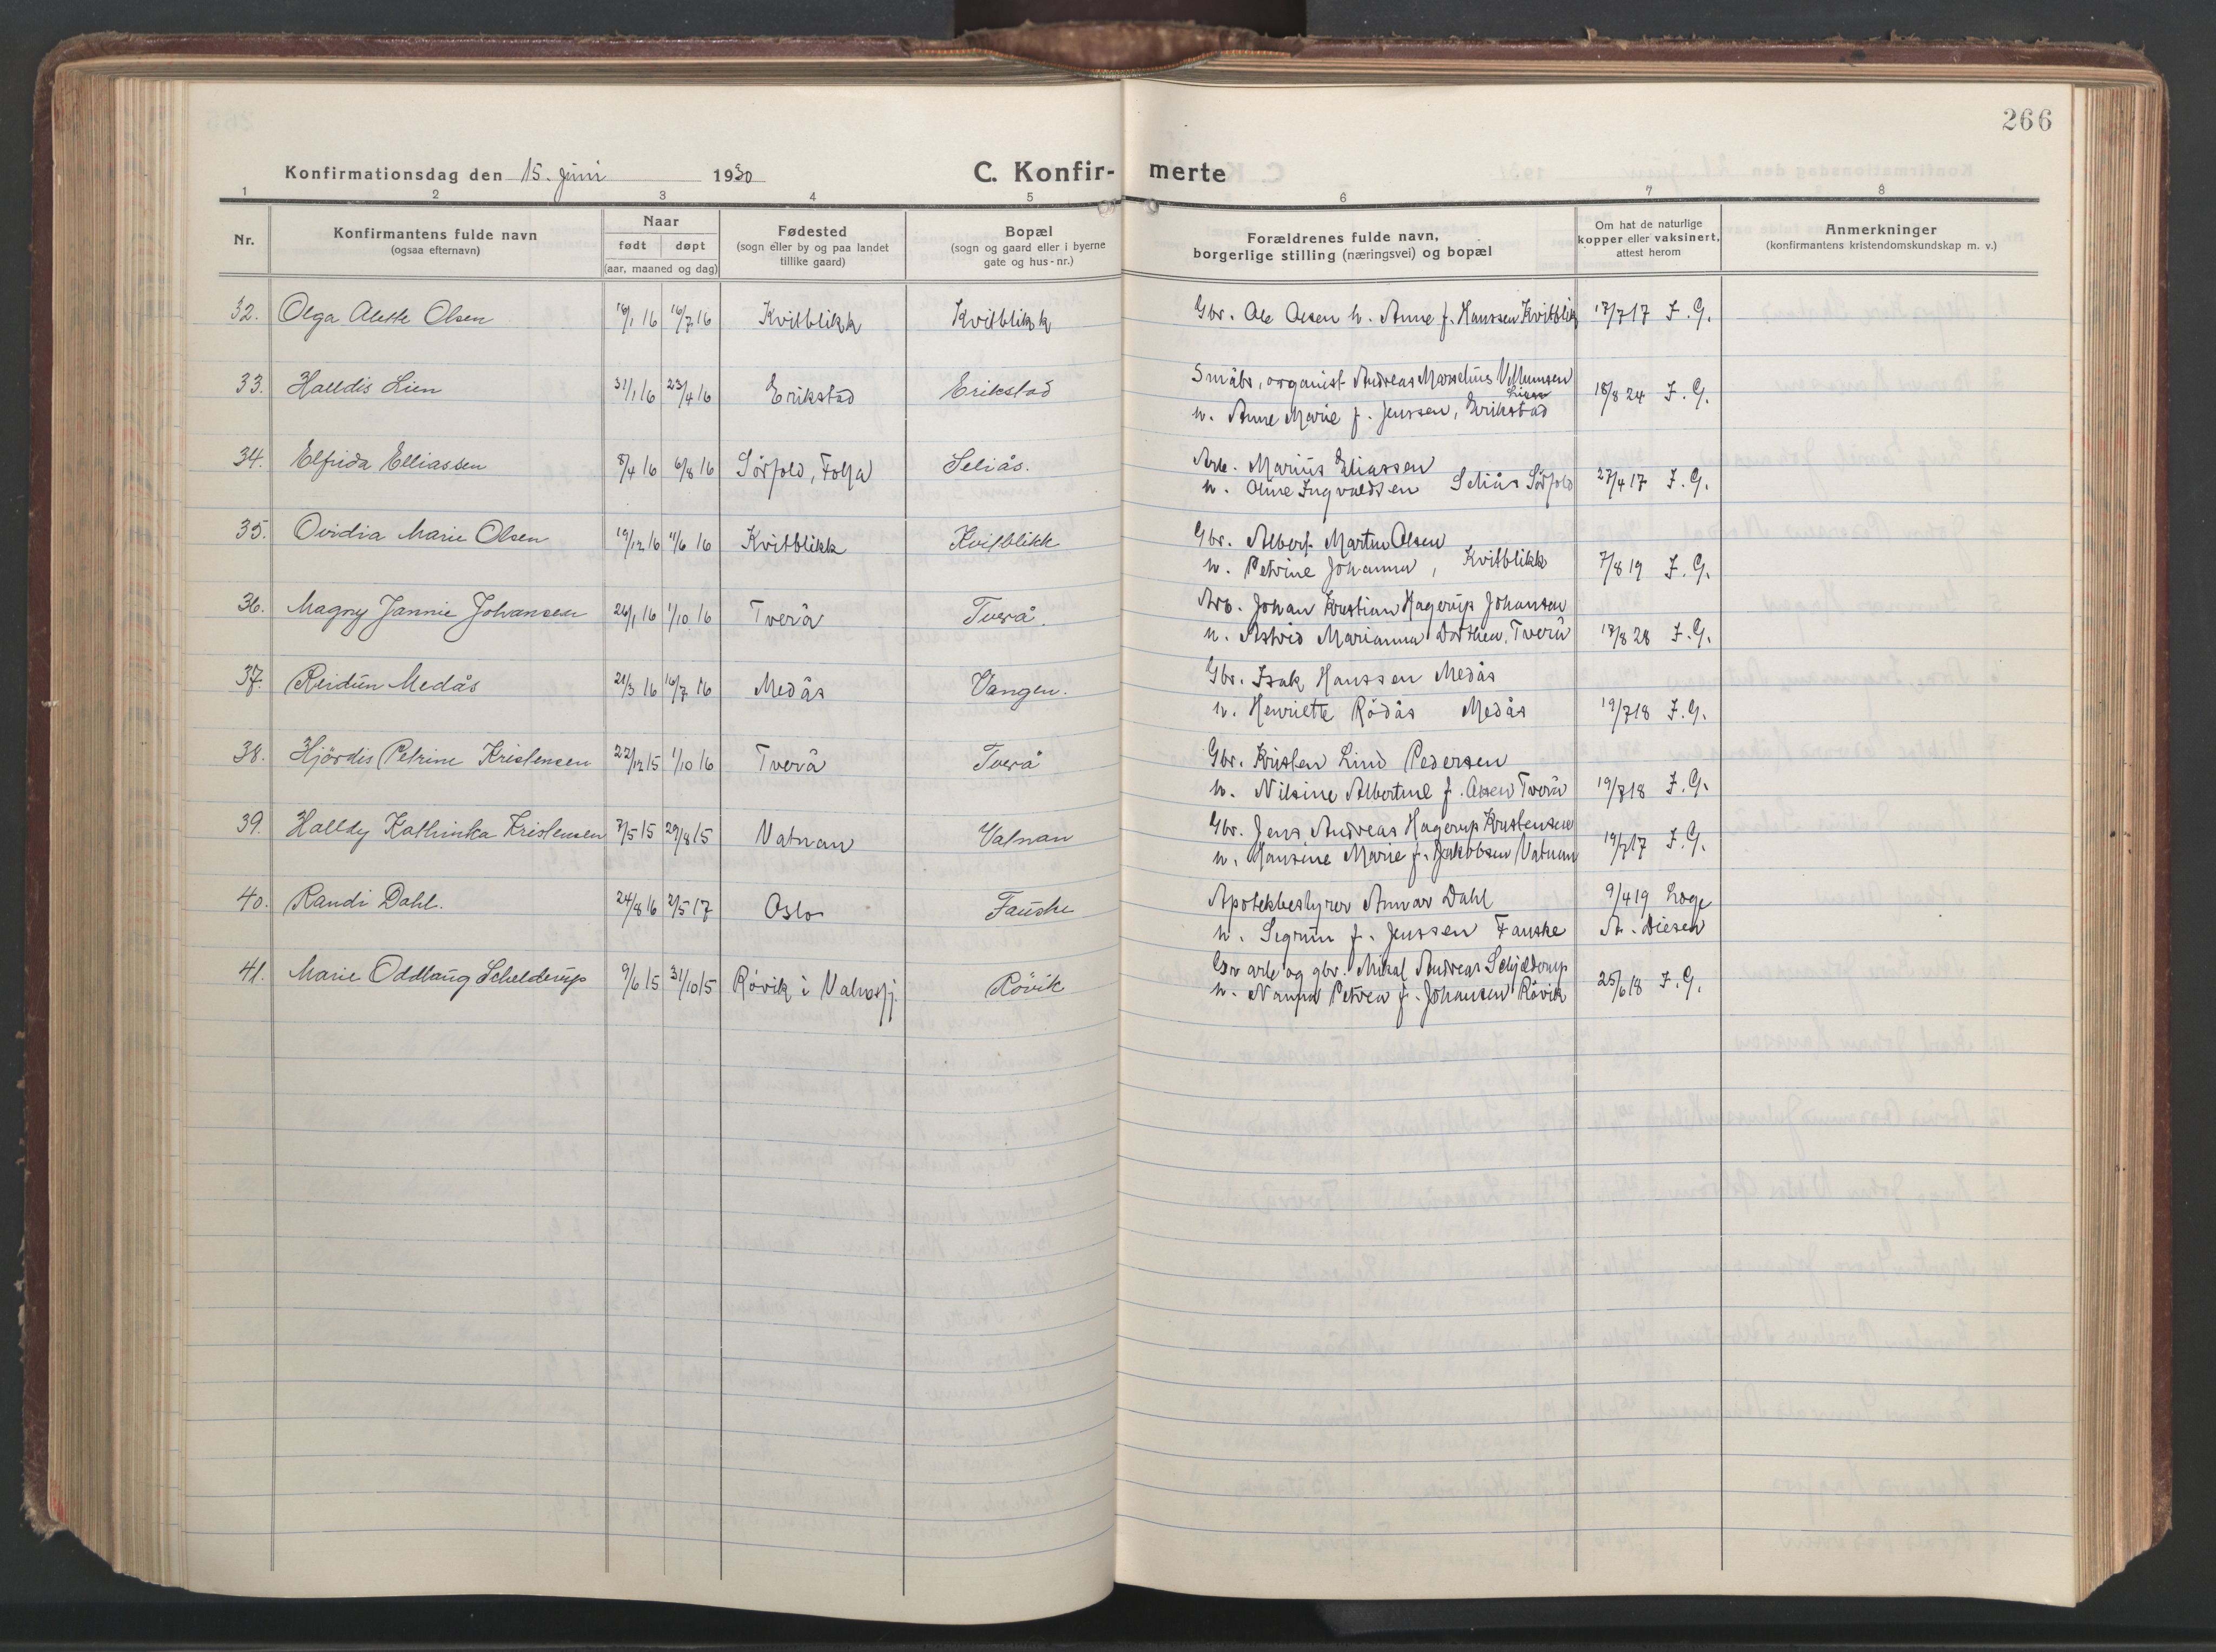 266
Konfirmationsdag den 15. juni 1930
C. Konfir- merte
1 2 3 4 5 6 7 8
Nr.
Konfirmantens fulde navn
(ogsaa efternavn)
Naar
født døpt
(aar, maaned og dag)
Fødested
(sogn eller by og paa landet
tillike gaard)
Bopæl
(sogn og gaard eller i byerne
gate og hus-nr.)
Forældrenes fulde navn,
borgerlige stilling (næringsvei) og bopæl
Om hat de naturlige
kopper eller vaksinert,
attest herom
Anmerkninger
(konfirmantens kristendomskundskap m. v.)
32. Olga Alette Olsen 16/1 16 16/7 16 Kvitblikk Kvitblikk Gbr. Ole Olsen h. Anne f. Hanssen Kvitblik 17/7 17 F. G.
33. Halldis Lien 31/1 16 23/4 16 Erikstad Erikstad Småbr, organist Andreas Marselius Villumsen
Lien
h. Anne Marie f. Jenssen, Erikstad 18/8 24 F. G.
34. Elfrida Elliassen 8/4 16 6/8 16 Sörfold, Folla Seliås. Arb. Marius Eliassen
h. Oline Ingvaldsen Seliås Sörfold 27/4 17 F. G.
35. Ovidia Marie Olsen 19/12 16 11/6 16 Kvitblikk Kvitblikk Gbr. Albert Martin Olsen
h. Petrine Johanna, Kvitblikk 7/8 19 F. G.
36. Magny Jannie Johansen 26/1 16 1/10 16 Tverå Tverå. Arb. Johan Kristian Hagerup Johansen
h. Astrid Marianna Dorthea, Tverå 17/8 28 F. G.
37. Reidun Medås 21/3 16 16/7 16 Medås Vangen. Gbr. Isak Hanssen Medås
h. Henriette Rödås Medås 19/7 18 F. G.
38. Hjördis Petrine Kristensen 22/12 15 1/10 16 Tverå Tverå Gbr. Kristen Lind Pedersen
h. Nilsine Albertine f. Olsen Tverå 19/7 18 F. G.
39. Halldy Kathinka Kristensen 7/5 15 29/8 15 Vatnan Vatnan Gbr. Jens Andreas Hagerup Kristensen
h. Hansine Marie f. Jakobsen, Vatnan 19/7 17 F. G.
40. Randi Dahl. 24/8 16 2/5 17 Oslo Fauske Apotekbestyrer Annar Dahl 9/4 19 Loge
h. Sigrun f. Jenssen Fauske A. Diesen
41. Marie Oddlaug Schelderup 9/6 15 31/10 15 Røvik i Valnesfj. Røvik Grv arb og gbr. Mikal Andreas Schjelderup
h. Nanna Petrea f. Johansen Røvik 25/6 18 F. G.